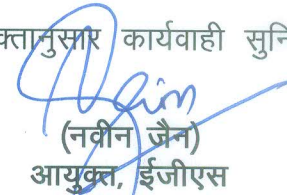 क्तानुसार कार्यवाही सुनि
(नवीन जैन)
आयुक्त, ईजीएस